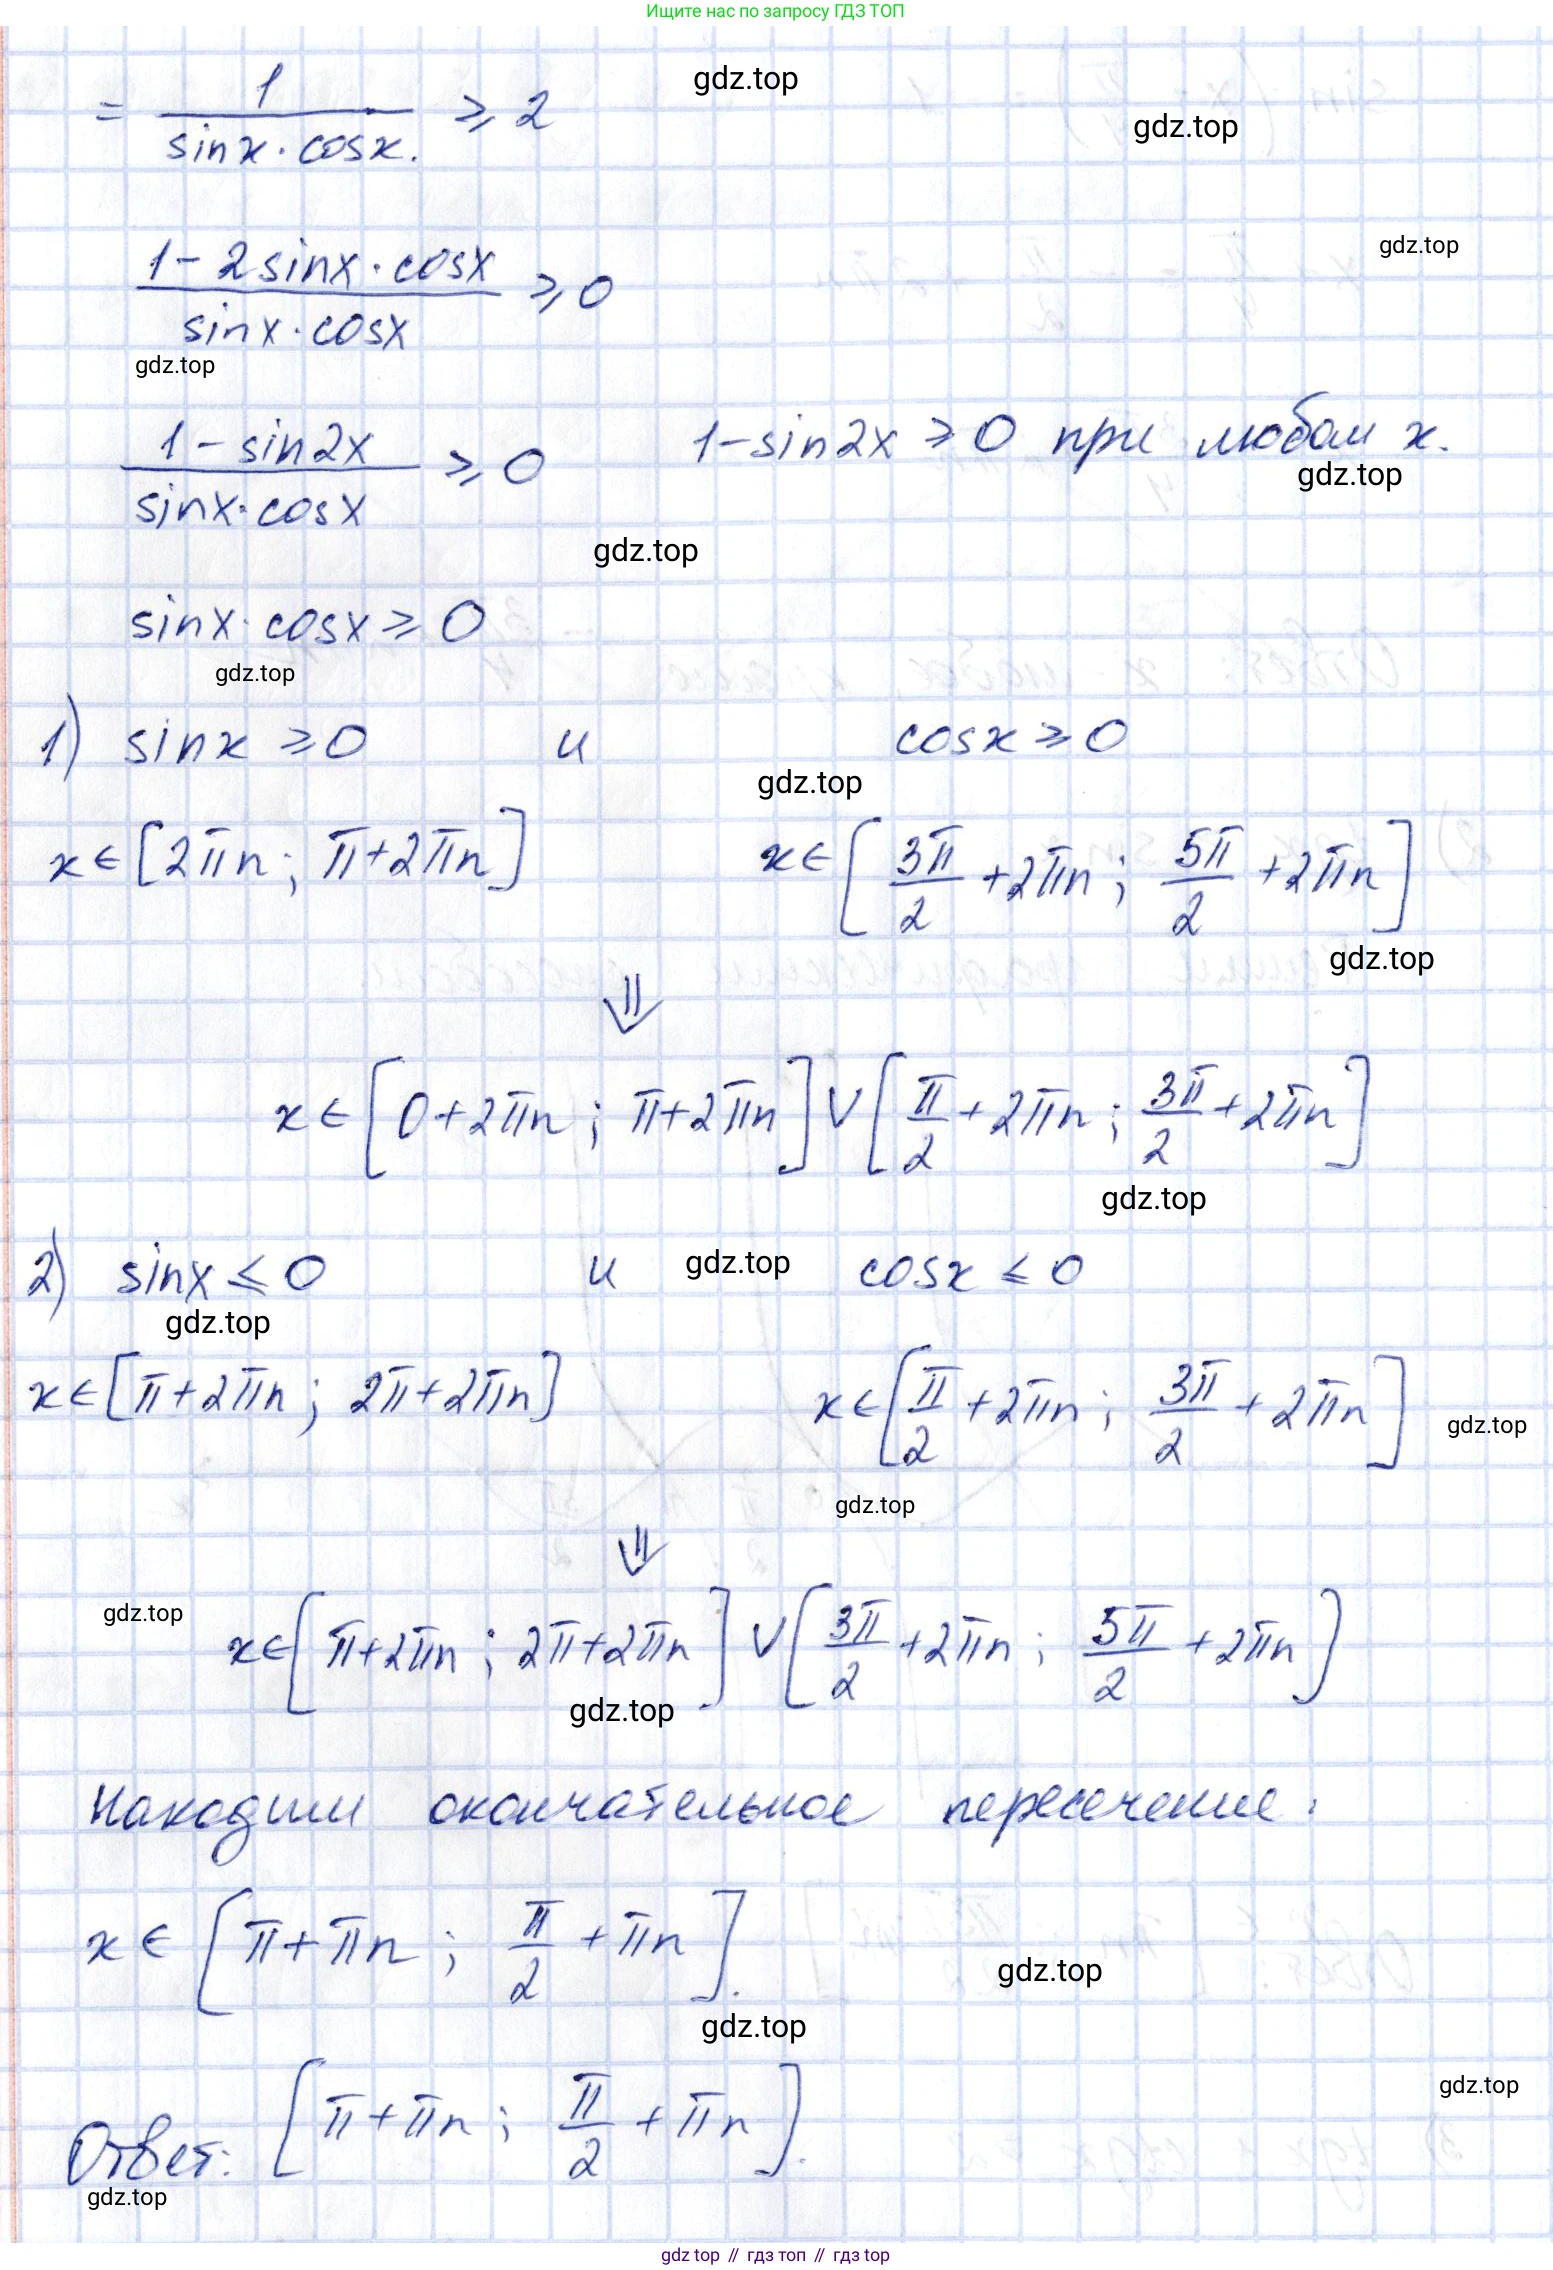 Ищите нас по запросу ГДЗ ТОП
gdz.top
= 1 / (sinx · cosx.) ⩾ 2
gdz.top
gdz.top
(1 - 2sinx · cosx) / (sinx · cosx) ⩾ 0
gdz.top
(1 - sin2x) / (sinx · cosx) ⩾ 0    1 - sin2x ⩾ 0 при любом x.
gdz.top
gdz.top
sinx · cosx ⩾ 0
gdz.top
1) sinx ⩾ 0 и cosx ⩾ 0
gdz.top
x ∈ [2πn; π+2πn]    x ∈ [3π/2 + 2πn; 5π/2 + 2πn]
gdz.top
⇓
x ∈ [0+2πn; π+2πn] ∨ [π/2 + 2πn; 3π/2 + 2πn]
gdz.top
2) sinx ⩽ 0 и gdz.top cosx ⩽ 0
gdz.top
x ∈ [π+2πn; 2π+2πn]    x ∈ [π/2 + 2πn; 3π/2 + 2πn]
gdz.top
gdz.top
⇓
gdz.top
x ∈ [π+2πn; 2π+2πn] ∨ [3π/2 + 2πn; 5π/2 + 2πn]
gdz.top
Находим окончательное пересечение:
x ∈ [π+πn; π/2 + πn].
gdz.top
gdz.top
gdz.top
Ответ: [π+πn; π/2 + πn].
gdz.top
gdz top // гдз топ // гдз top